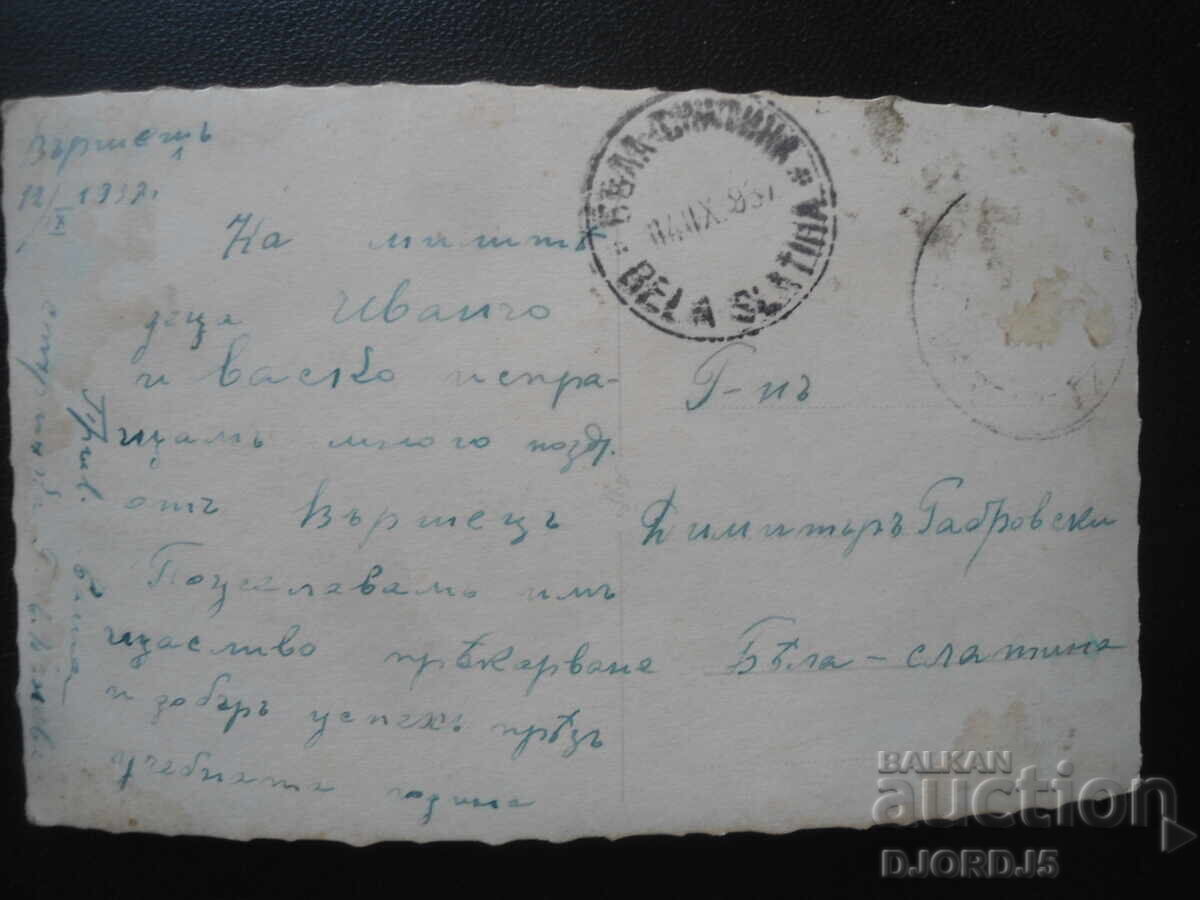 Вършецъ
12/IX 1937 г.
На милитѣ
деца Иванчо
и Васко испра-
щамъ много поздр.
отъ Вършецъ
Пожелавамъ имъ
щасливо прѣкарване
и добъръ успехъ прѣзъ
учебната година
Г-нъ
Димитъръ Габровски
Бѣла-слатина
БѢЛА-СЛАТИНА
BELA SLATINA
BALKAN
auction
DJORDJ5